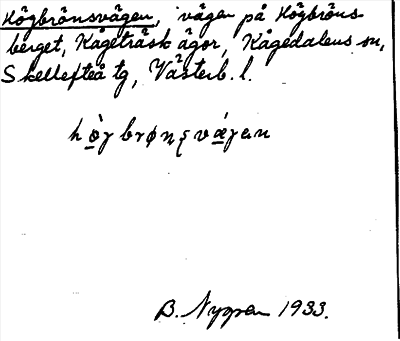 Högbrönsvägen, vägen på Högbröns
berget, Kågeträsk ägor, Kågedalens sn,
Skellefteå tg, Västerb. l.
B. Nygren 1933.